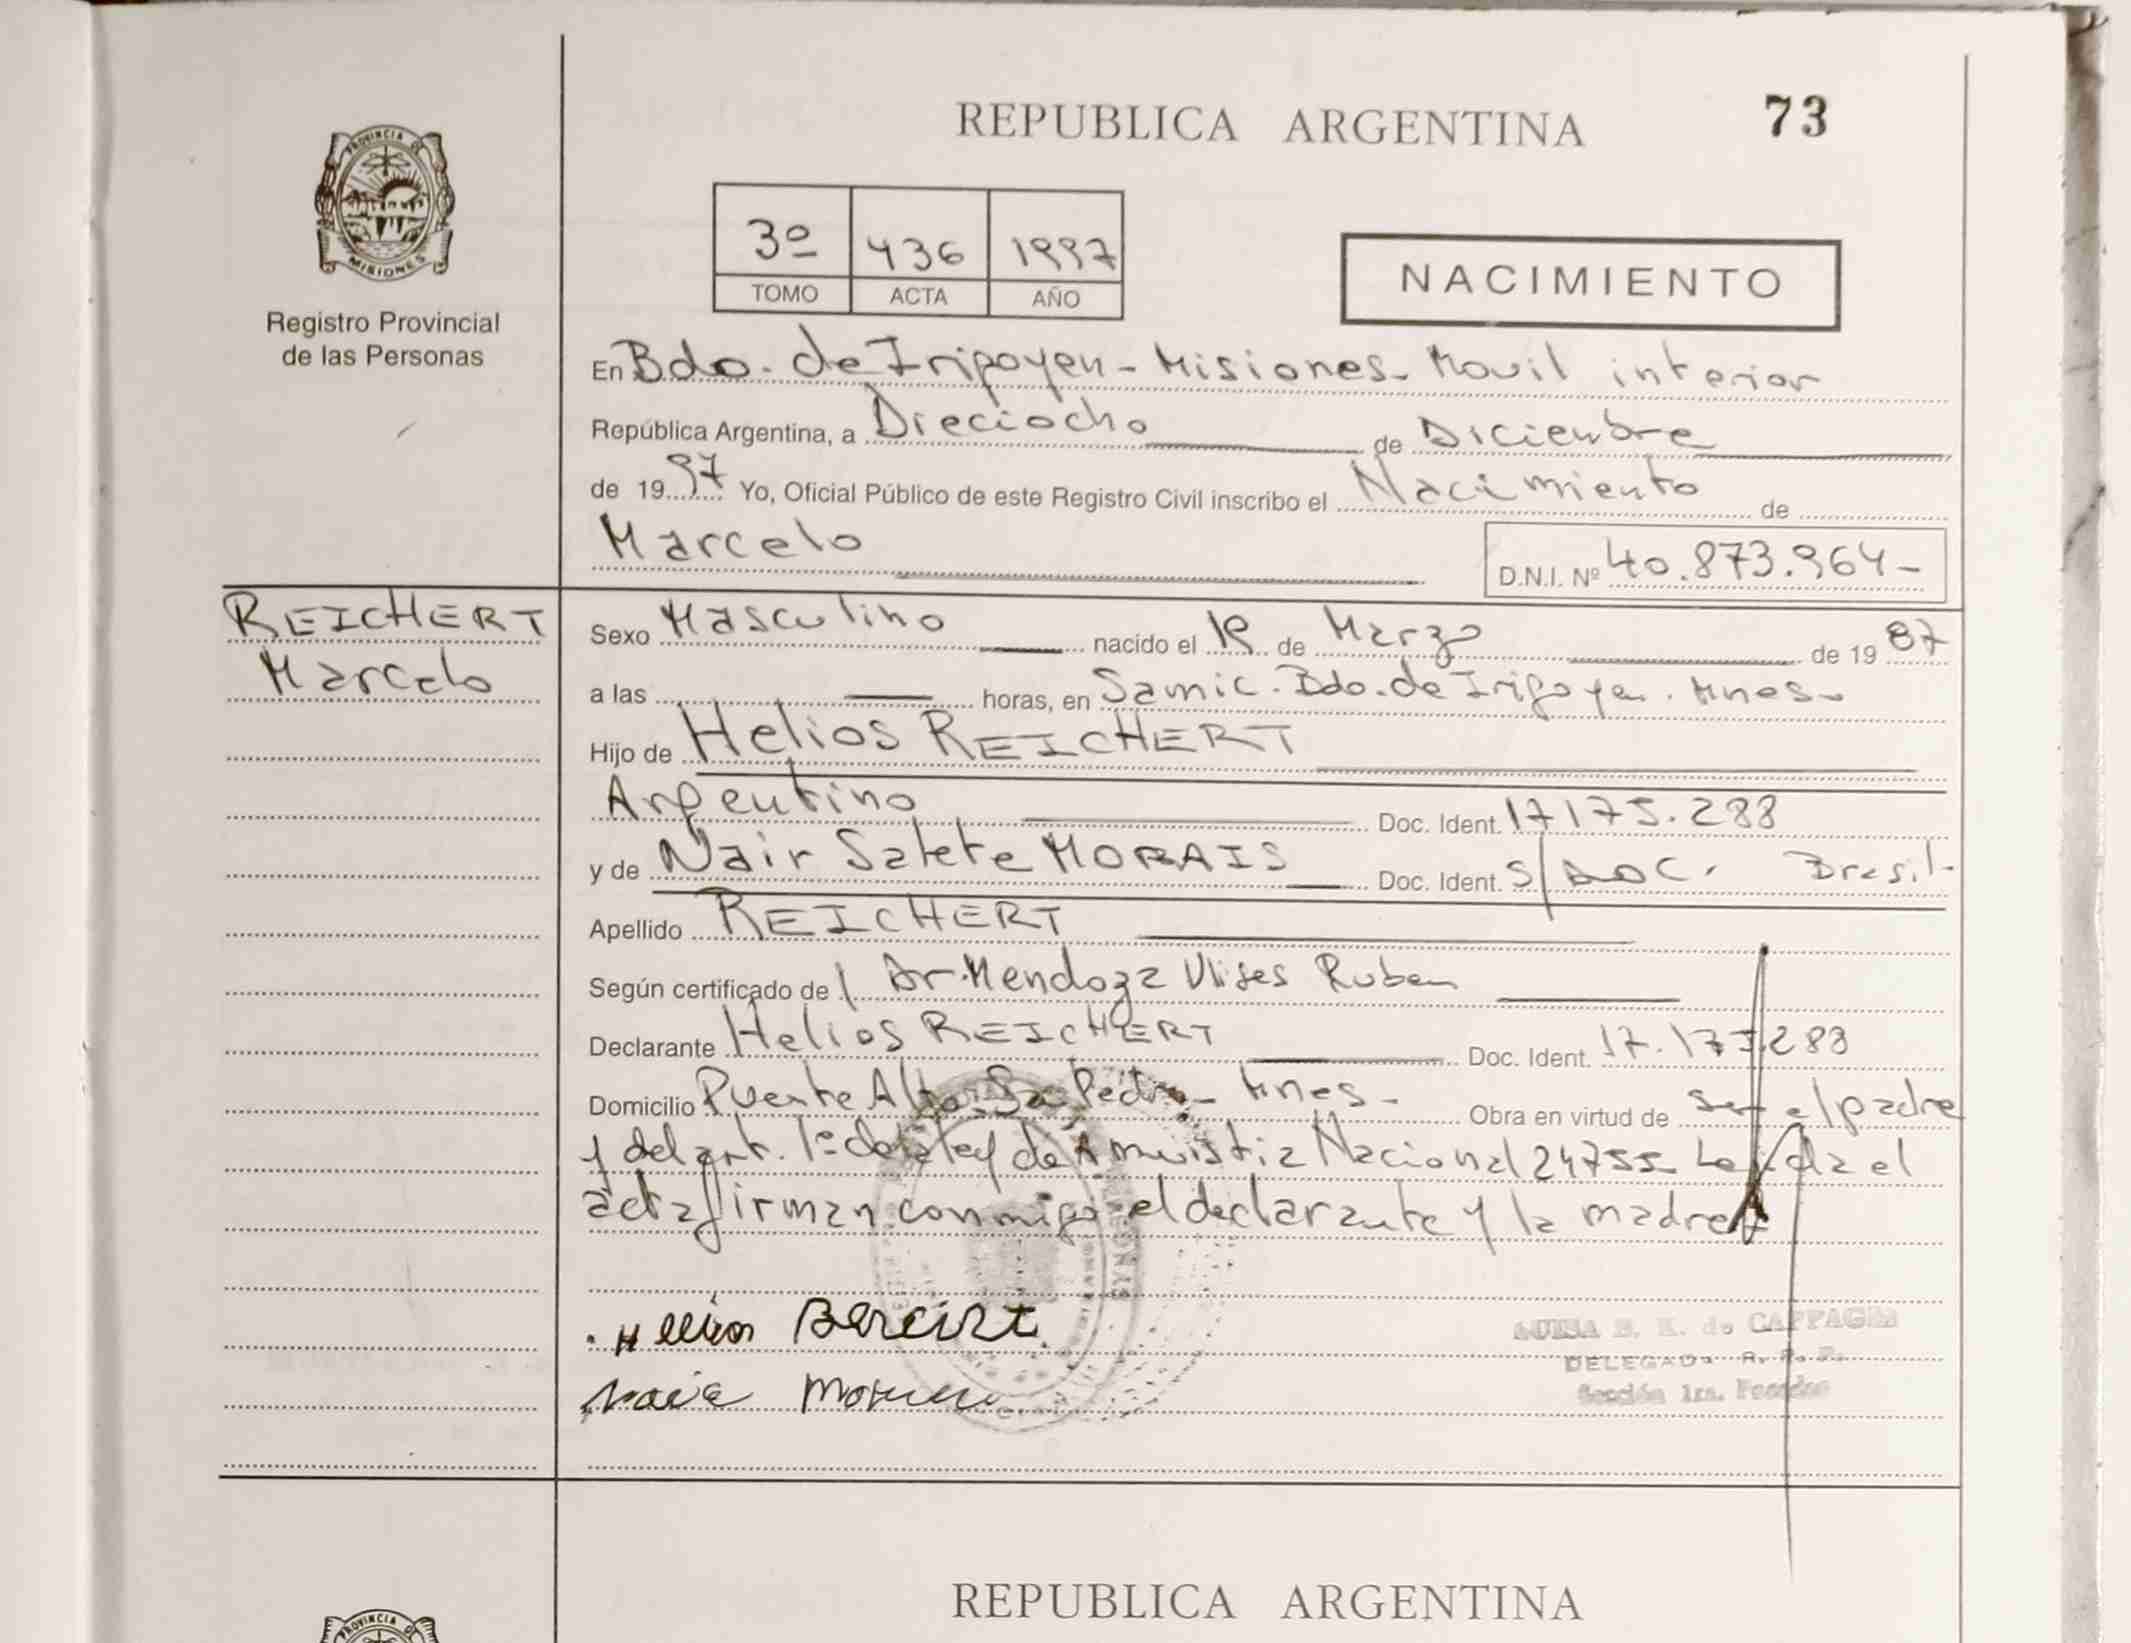 REPUBLICA ARGENTINA
73
PROVINCIA DE
MISIONES
Registro Provincial
de las Personas
3º 436 1997
TOMO ACTA AÑO
NACIMIENTO
En Bdo. de Irigoyen - Misiones - Movil interior
República Argentina, a Dieciocho de Diciembre
de 1997 Yo, Oficial Público de este Registro Civil inscribo el Nacimiento de
Marcelo
D.N.I. Nº 40.873.964-
REICHERT
Marcelo
Sexo Masculino nacido el de Marzo de 1987
a las horas, en Samic. Bdo. de Irigoyen. Mnes-
Hijo de Helios REICHERT
Argentino Doc. Ident. 17175.288
y de Nair Salete MORAIS Doc. Ident. S/DOC. Brasil-
Apellido REICHERT
Según certificado de Dr. Mendoza Ulises Ruben
Declarante Helios REICHERT Doc. Ident. 17.175.288
Domicilio Puente Alto Sn Pedro - Mnes - Obra en virtud de ser el padre
y del art. 1º de la ley de Amnistia Nacional 24755- Leida el
acta firman conmigo el declarante y la madre
DELEGADA R. P. P.
REPUBLICA ARGENTINA
PROVINCIA DE